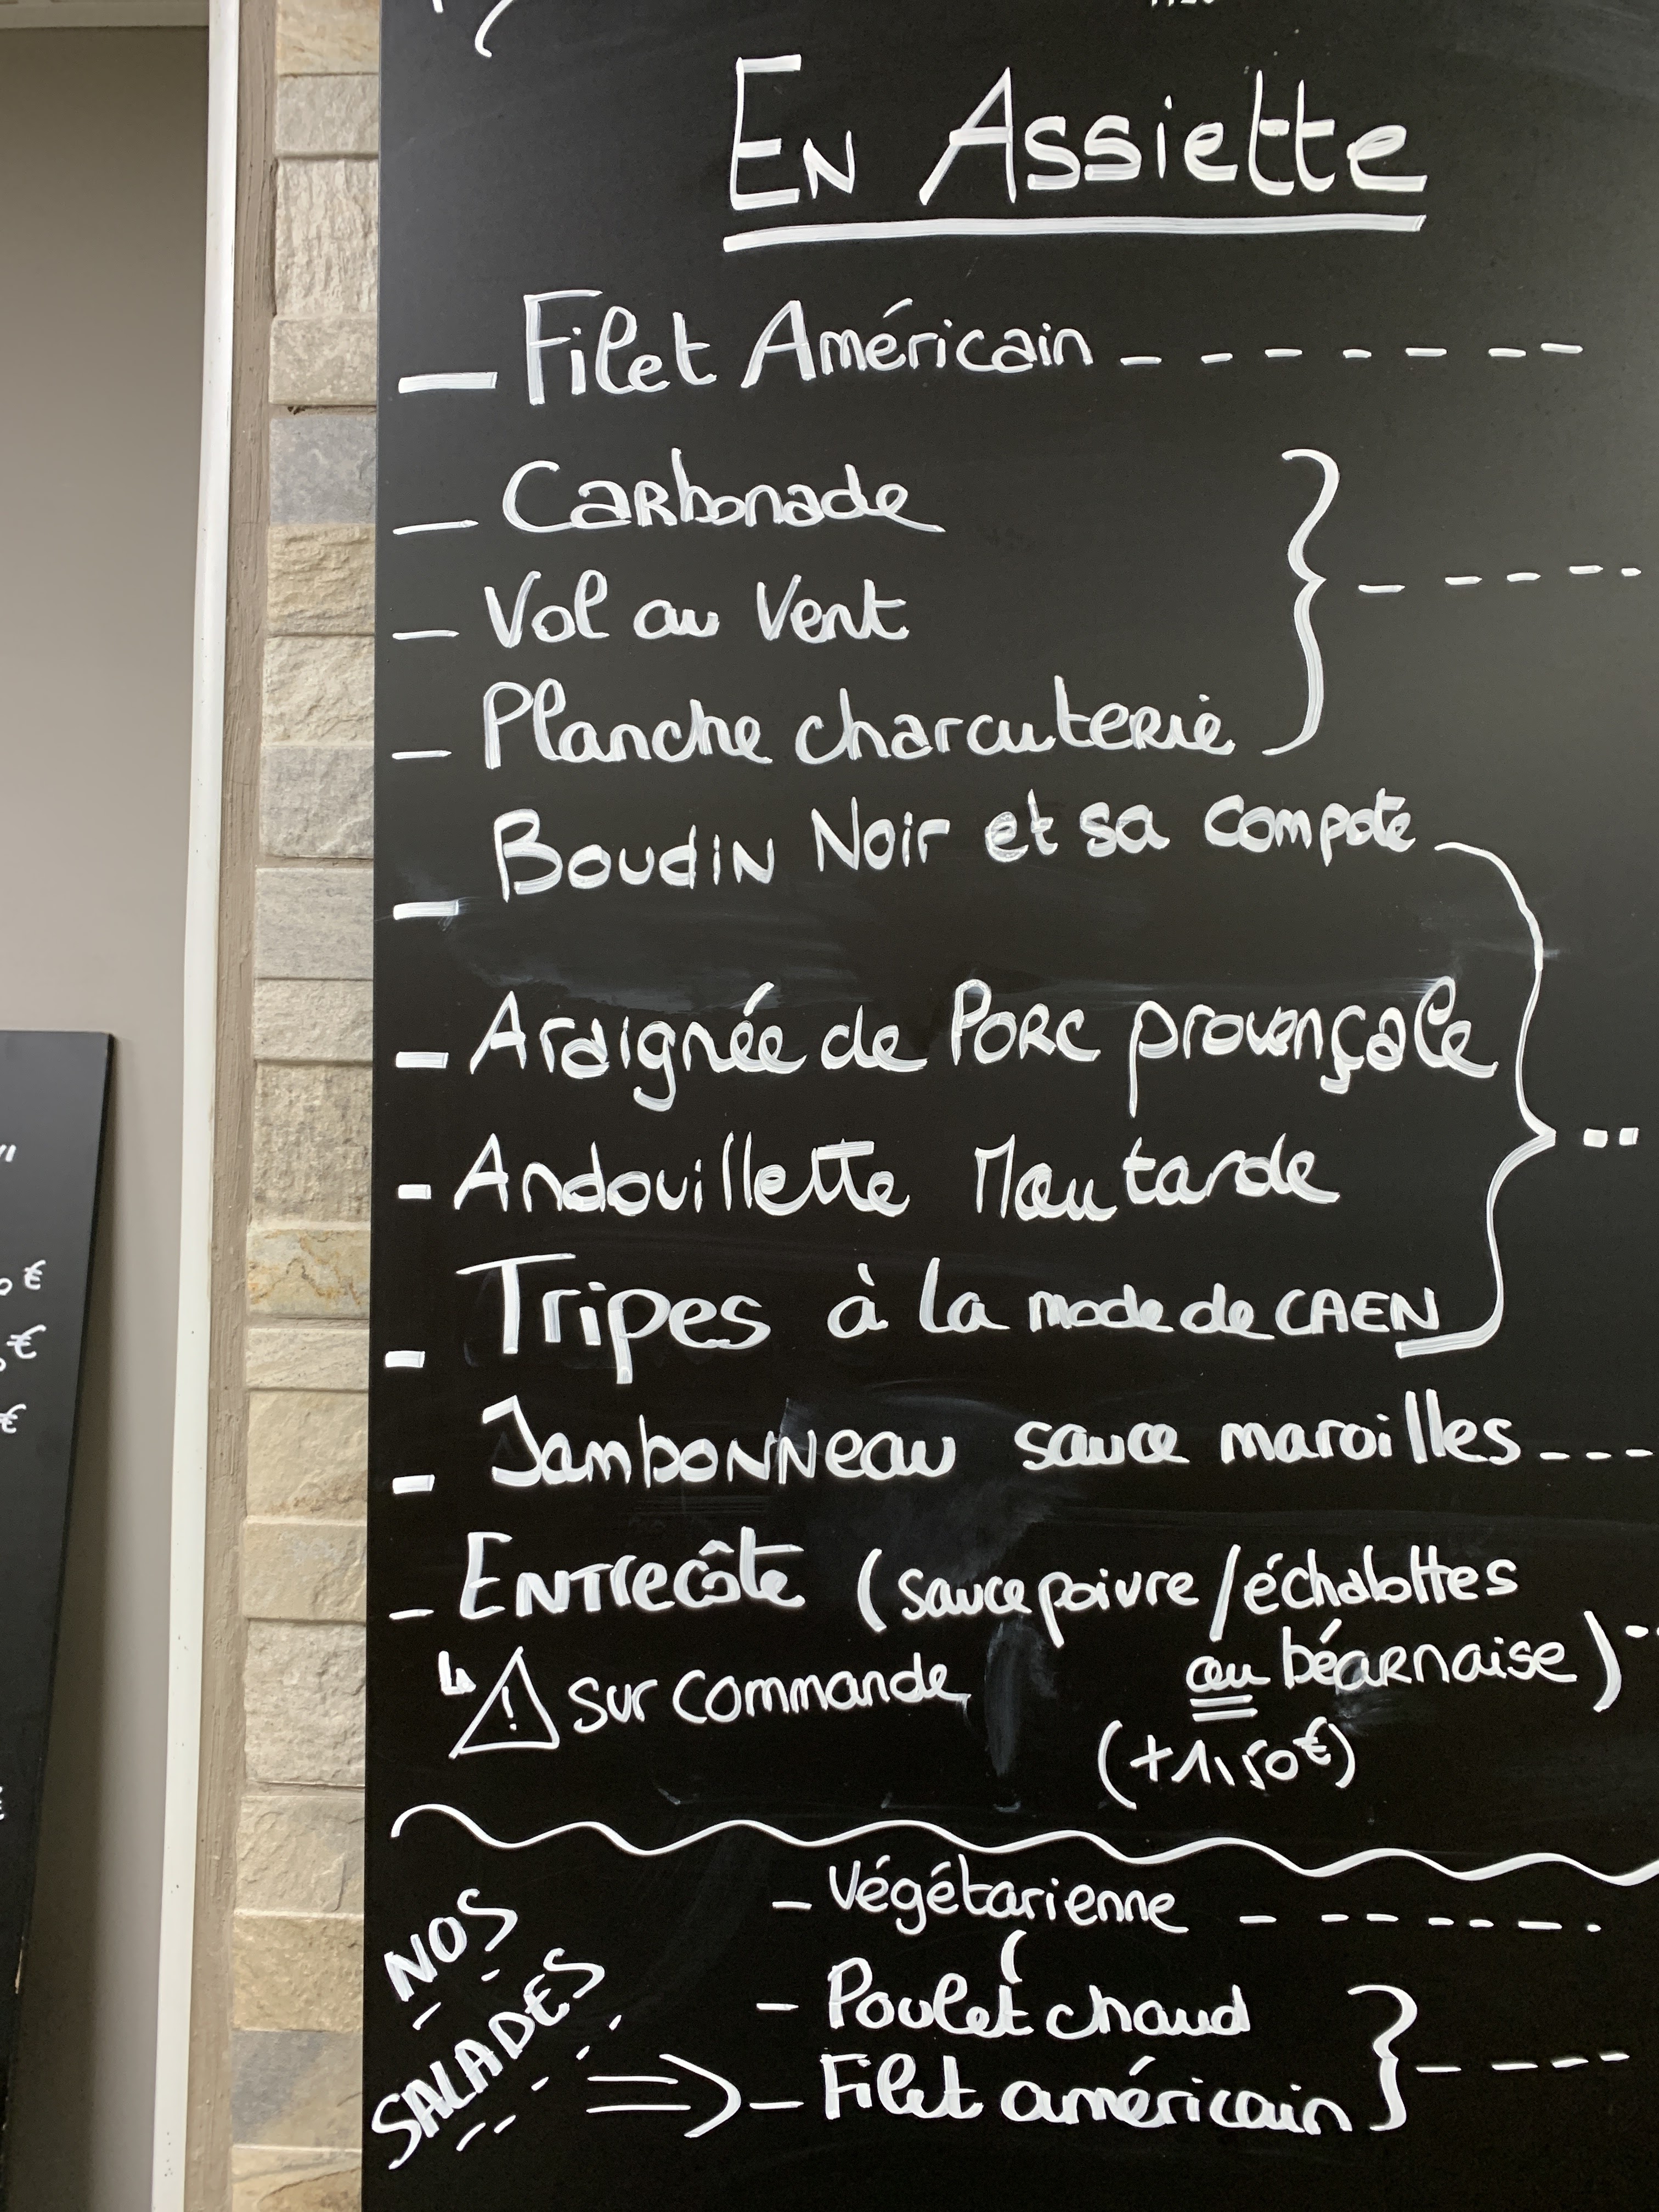 En Assiette
– Filet Américain - - - - - - -
– Carbonade
– Vol au Vent
– Planche charcuterie
– Boudin Noir et sa compote
– Araignée de Porc provençale
- Andouillette Moutarde
– Tripes à la mode de CAEN
– Jambonneau sauce maroilles - - -
– Entrecôte (sauce poivre/échalottes
ou béarnaise)
↳ ⚠ sur commande
(+1,50€)
NOS
SALADES
– Végétarienne - - - - - -
– Poulet chaud
⇒ – Filet américain
€
€
€